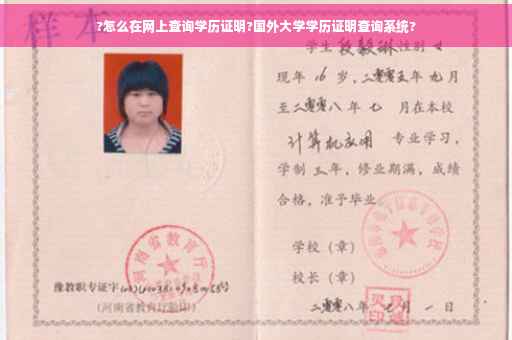 样本
?怎么在网上查询学历证明?国外大学学历证明查询系统?
学生段毅琳性别女
现年16岁,二零零五年九月
至二零零八年七月在本校
计算机应用专业学习,
学制三年,修业期满,成绩
合格,准予毕业
河南省教育厅
学校(章)
校长(章)
豫教职专证字
(河南省教育厅验印)
二零零八年 月一日